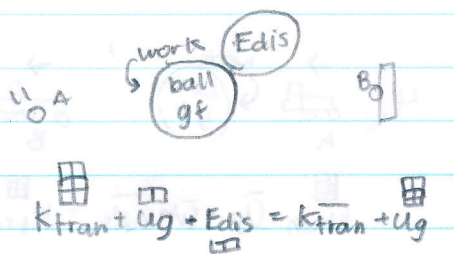 work
Edis
ball
gf
A
B
Ktran + Ug - Edis = Ktran + Ug